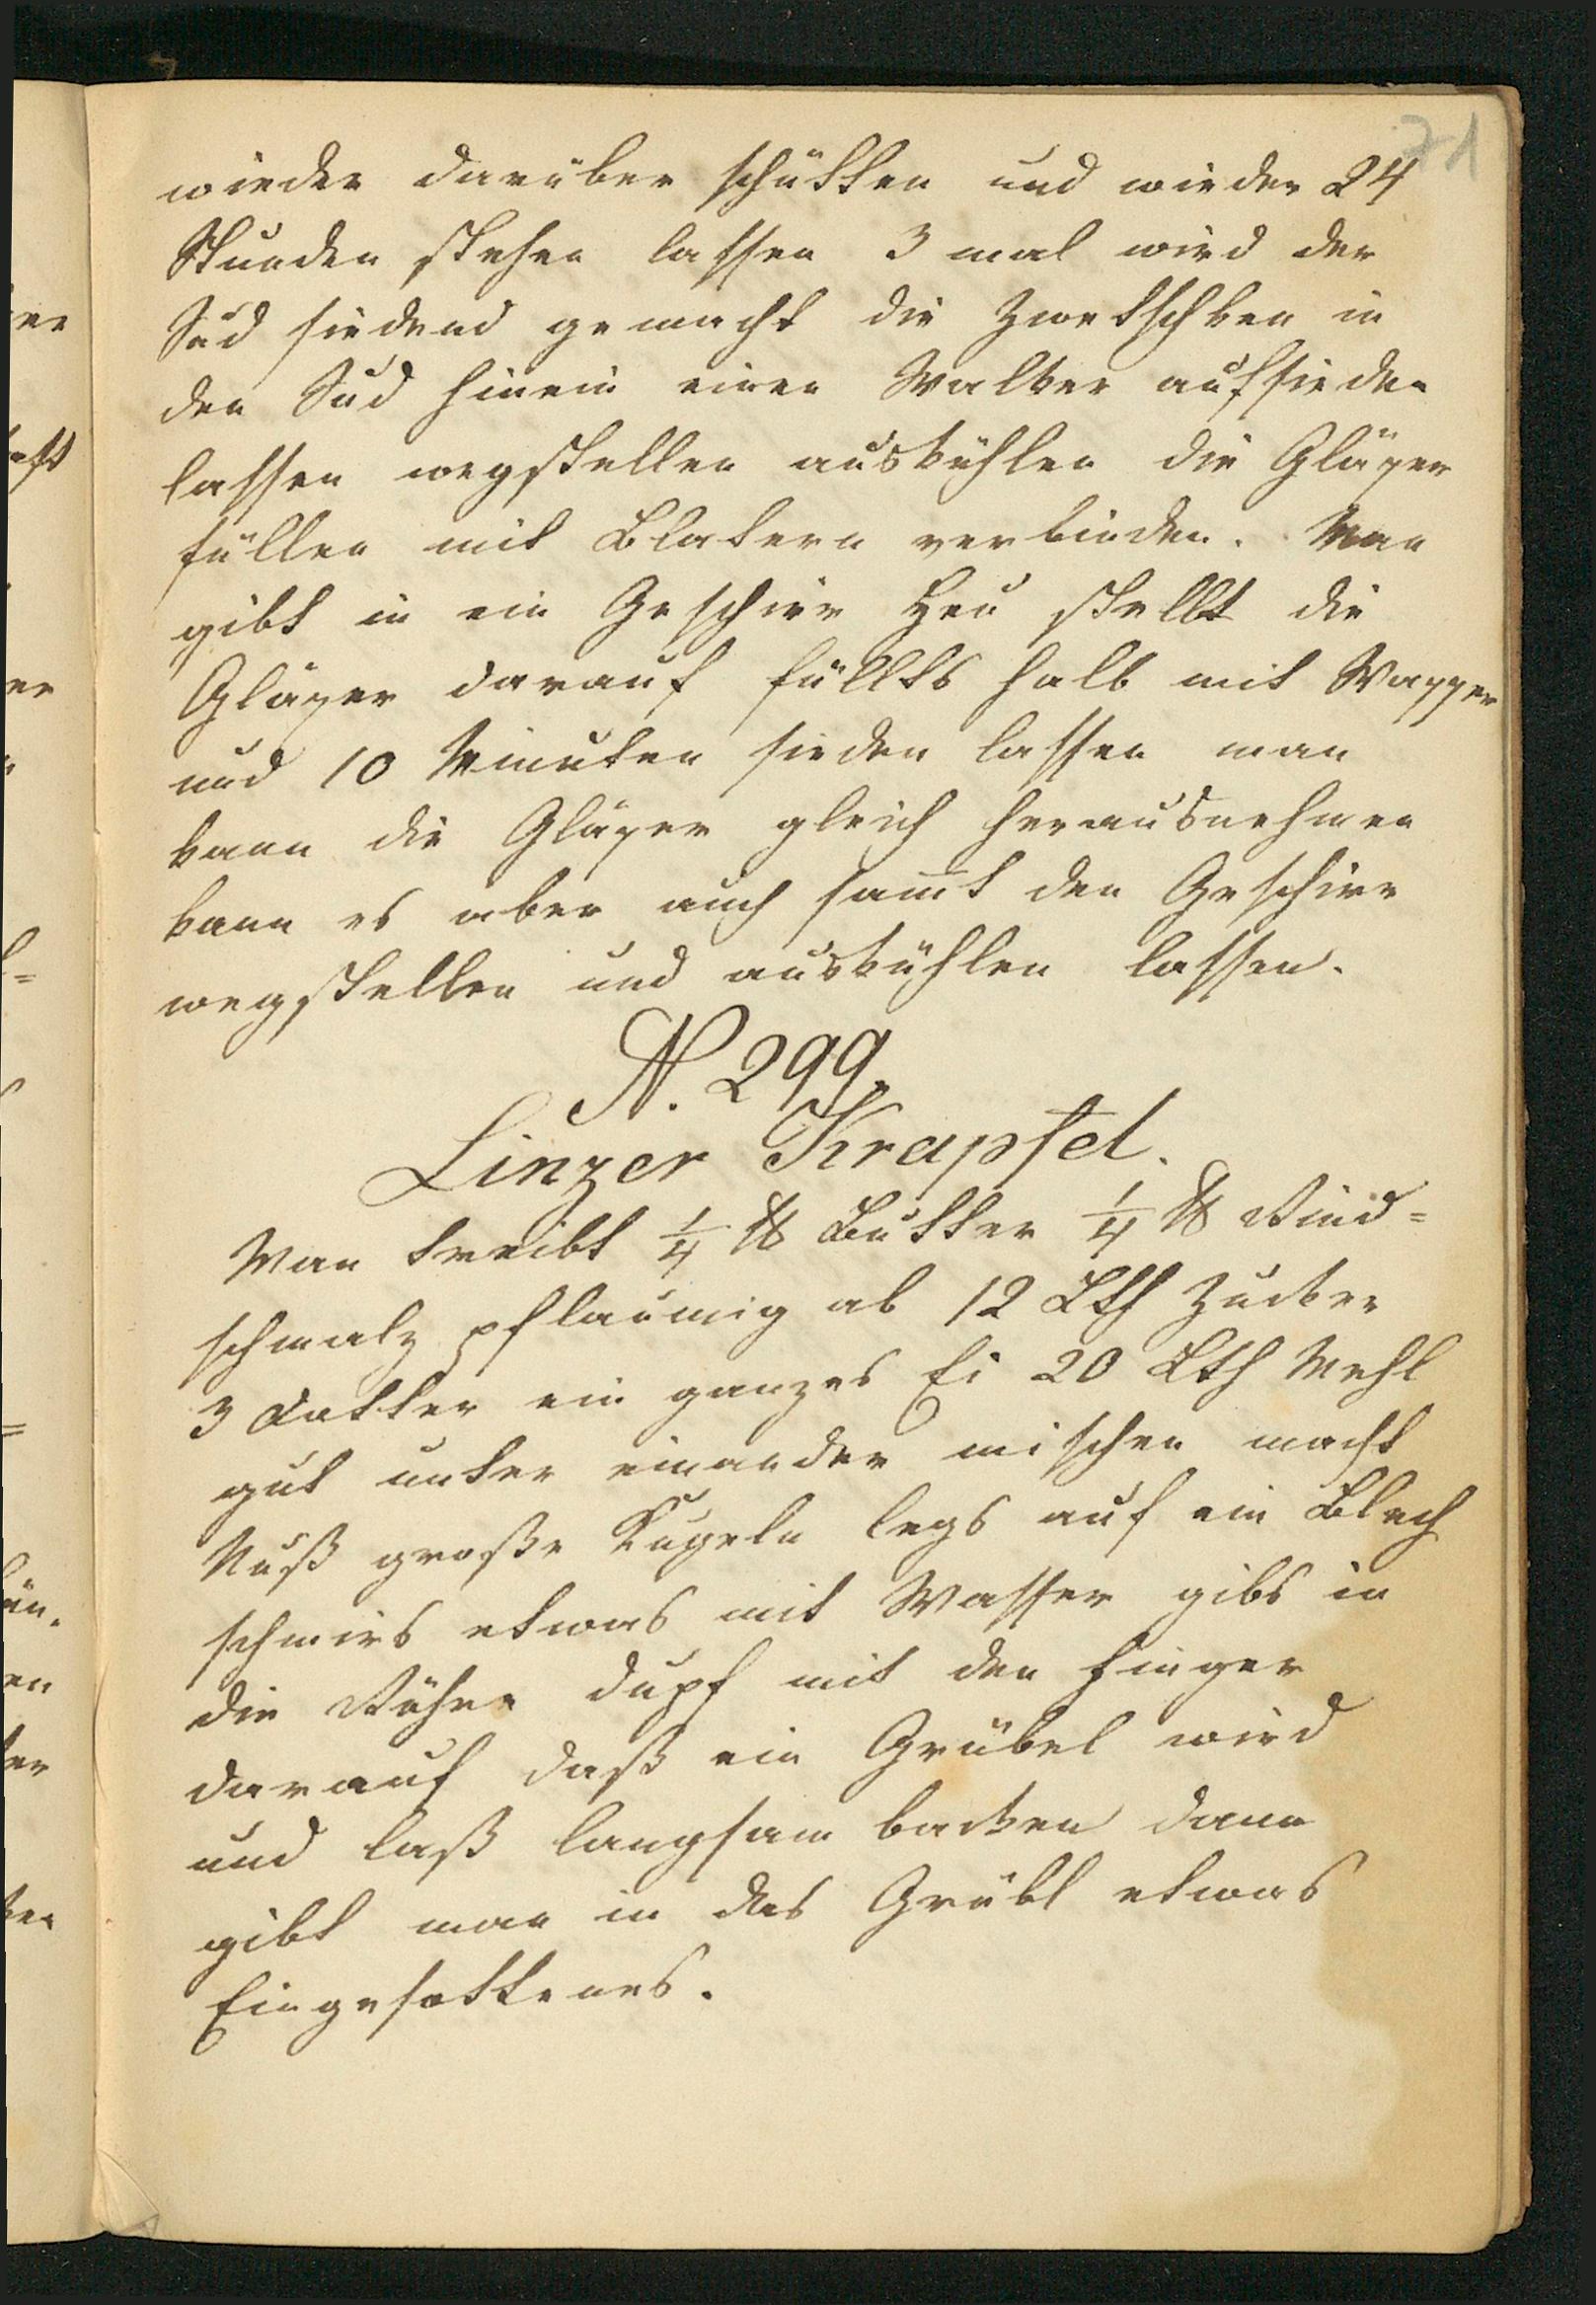 71
wieder darüber schütten und wieder 24
Stunden stehen lassen 3 mal wird der
Sud siedend gemacht die Zwetschken in
den Sud hinein einen Walker aufsieden
lassen wegstellen auskühlen die Gläßer
füllen mit Blatern verbinden. Man
gibt in ein Geschirr Heu stellt die
Gläßer darauf füllts halb mit Waßßer
und 10 Minuten sieden lassen man
kann die Gläßer gleich herausnehmen
kann es aber auch sam̅t den Geschirr
wegstellen und auskühlen lassen.
N. 299.
Linzer Krapfel.
Man treibt ¼ ℔ Butter ¼ ℔ Rind=
schmalz pflaumig ab 12 Lth Zucker
3 Dotter ein ganzes Ei 20 Lth Mehl
gut unter einander mischen macht
Nuß große Kugeln legs auf ein Blech
schmirs etwas mit Wasser gibs in
die Röhre dupf mit den Finger
darauf daß ein Grübel wird
und laß langsam backen dann
gibt man in das Grübl etwas
Eingesottenes.